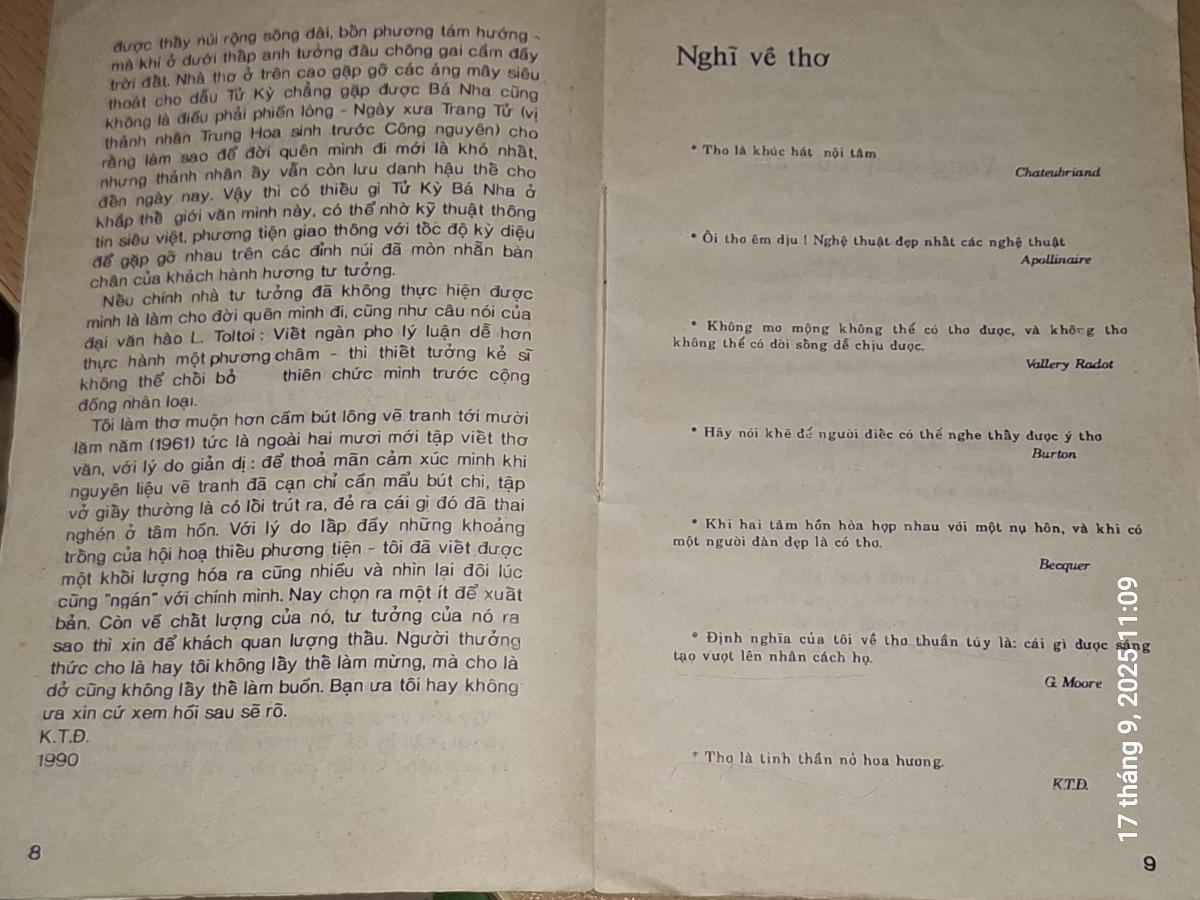 được thầy núi rộng sông dài, bồn phương tám hướng -
mà khi ở dưới thấp anh tưởng đâu chông gai cầm đầy
trời đất. Nhà thơ ở trên cao gặp gỡ các áng mây siêu
thoát cho dầu Tử Kỳ chẳng gặp được Bá Nha cũng
không là điều phải phiền lòng - Ngày xưa Trang Tử (vị
thánh nhân Trung Hoa sinh trước Công nguyên) cho
rằng làm sao để đời quên mình đi mới là khó nhất,
nhưng thánh nhân ấy vẫn còn lưu danh hậu thế cho
đến ngày nay. Vậy thì có thiếu gì Tử Kỳ Bá Nha ở
khắp thế giới văn minh này, có thể nhờ kỹ thuật thông
tin siêu việt, phương tiện giao thông với tốc độ kỳ diệu
để gặp gỡ nhau trên các đỉnh núi đã mòn nhẵn bàn
chân của khách hành hương tư tưởng.
Nếu chính nhà tư tưởng đã không thực hiện được
mình là làm cho đời quên mình đi, cũng như câu nói của
đại văn hào L. Toltoi : Viết ngàn pho lý luận dễ hơn
thực hành một phương châm - thì thiết tưởng kẻ sĩ
không thể chối bỏ thiên chức mình trước cộng
đồng nhân loại.
Tôi làm thơ muộn hơn cầm bút lông vẽ tranh tới mười
lăm năm (1961) tức là ngoài hai mươi mới tập viết thơ
văn, với lý do giản dị : để thoả mãn cảm xúc mình khi
nguyên liệu vẽ tranh đã cạn chỉ cần mẩu bút chì, tập
vở giấy thường là có lối trút ra, đẻ ra cái gì đó đã thai
nghén ở tâm hồn. Với lý do lấp đầy những khoảng
trống của hội hoạ thiếu phương tiện - tôi đã viết được
một khối lượng hóa ra cũng nhiều và nhìn lại đôi lúc
cũng "ngán" với chính mình. Nay chọn ra một ít để xuất
bản. Còn về chất lượng của nó, tư tưởng của nó ra
sao thì xin để khách quan lượng thấu. Người thưởng
thức cho là hay tôi không lấy thế làm mừng, mà cho là
dở cũng không lấy thế làm buồn. Bạn ưa tôi hay không
ưa xin cứ xem hồi sau sẽ rõ.
K.T.Đ.
1990
8
Nghĩ về thơ
* Thơ là khúc hát nội tâm
Chateubriand
* Ôi thơ êm dịu ! Nghệ thuật đẹp nhất các nghệ thuật
Apollinaire
* Không mơ mộng không thể có thơ được, và không thơ
không thể có đời sống dễ chịu được.
Vallery Radot
* Hãy nói khẽ để người điếc có thể nghe thấy được ý thơ
Burton
* Khi hai tâm hồn hòa hợp nhau với một nụ hôn, và khi có
một người đàn đẹp là có thơ.
Becquer
* Định nghĩa của tôi về thơ thuần túy là: cái gì được sáng
tạo vượt lên nhân cách họ.
G. Moore
* Thơ là tinh thần nở hoa hương.
K.T.Đ.
9
17 tháng 9, 2025 11:09